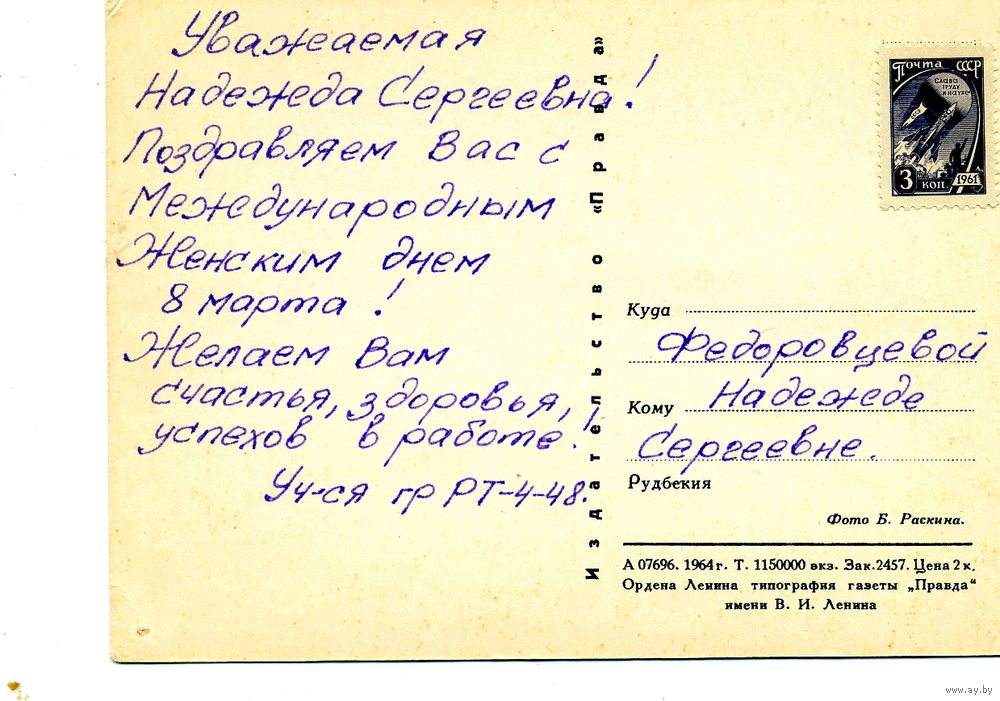 Уважаемая
Надежда Сергеевна!
Поздравляем Вас с
Международным
Женским днем
8 марта!
Желаем Вам
счастья, здоровья,
успехов в работе!
Уч-ся гр РТ-4-48.
Издательство «Правда»
Почта СССР
Слава
труду
и науке
3 коп.
1961
Куда
Федоровцевой
Кому Надежде
Сергеевне.
Рудбекия
Фото Б. Раскина.
А 07696. 1964 г. Т. 1150000 экз. Зак. 2457. Цена 2 к.
Ордена Ленина типография газеты „Правда“
имени В. И. Ленина
www.ay.by